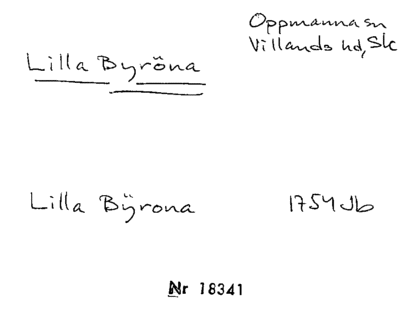 Oppmanna sn
Villands hd, Sk
Lilla Byröna
Lilla Bÿrona 1754 Jb
Nr 18341